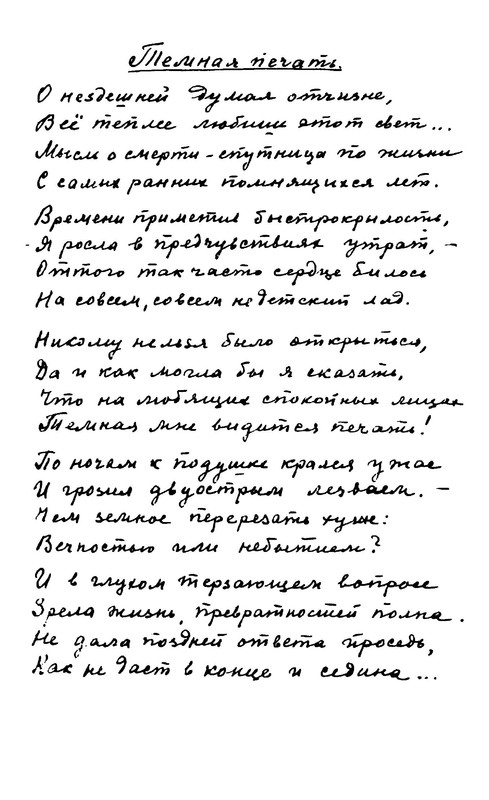 Темная печать.
О нездешней думая отчизне,
Всё теплее любиши этот свет...
Мысль о смерти – спутница по жизни
С самых ранних помнящихся лет.
Времени приметив быстрокрылость,
Я росла в предчувствиях утрат, –
Оттого так часто сердце билось
На совсем, совсем недетский лад.
Никому нельзя было открыться,
Да и как могла бы я сказать,
Что на любящих спокойных лицах
Темная мне видится печать!
По ночам к подушке крался ужас
И грозил двуострым лезвием. –
Чем земное перерезать хуже:
Вечностью или небытием?
И в глухом терзающем вопросе
Зрела жизнь, превратностей полна.
Не дала поздней ответа проседь,
Как не даст в конце и седина...